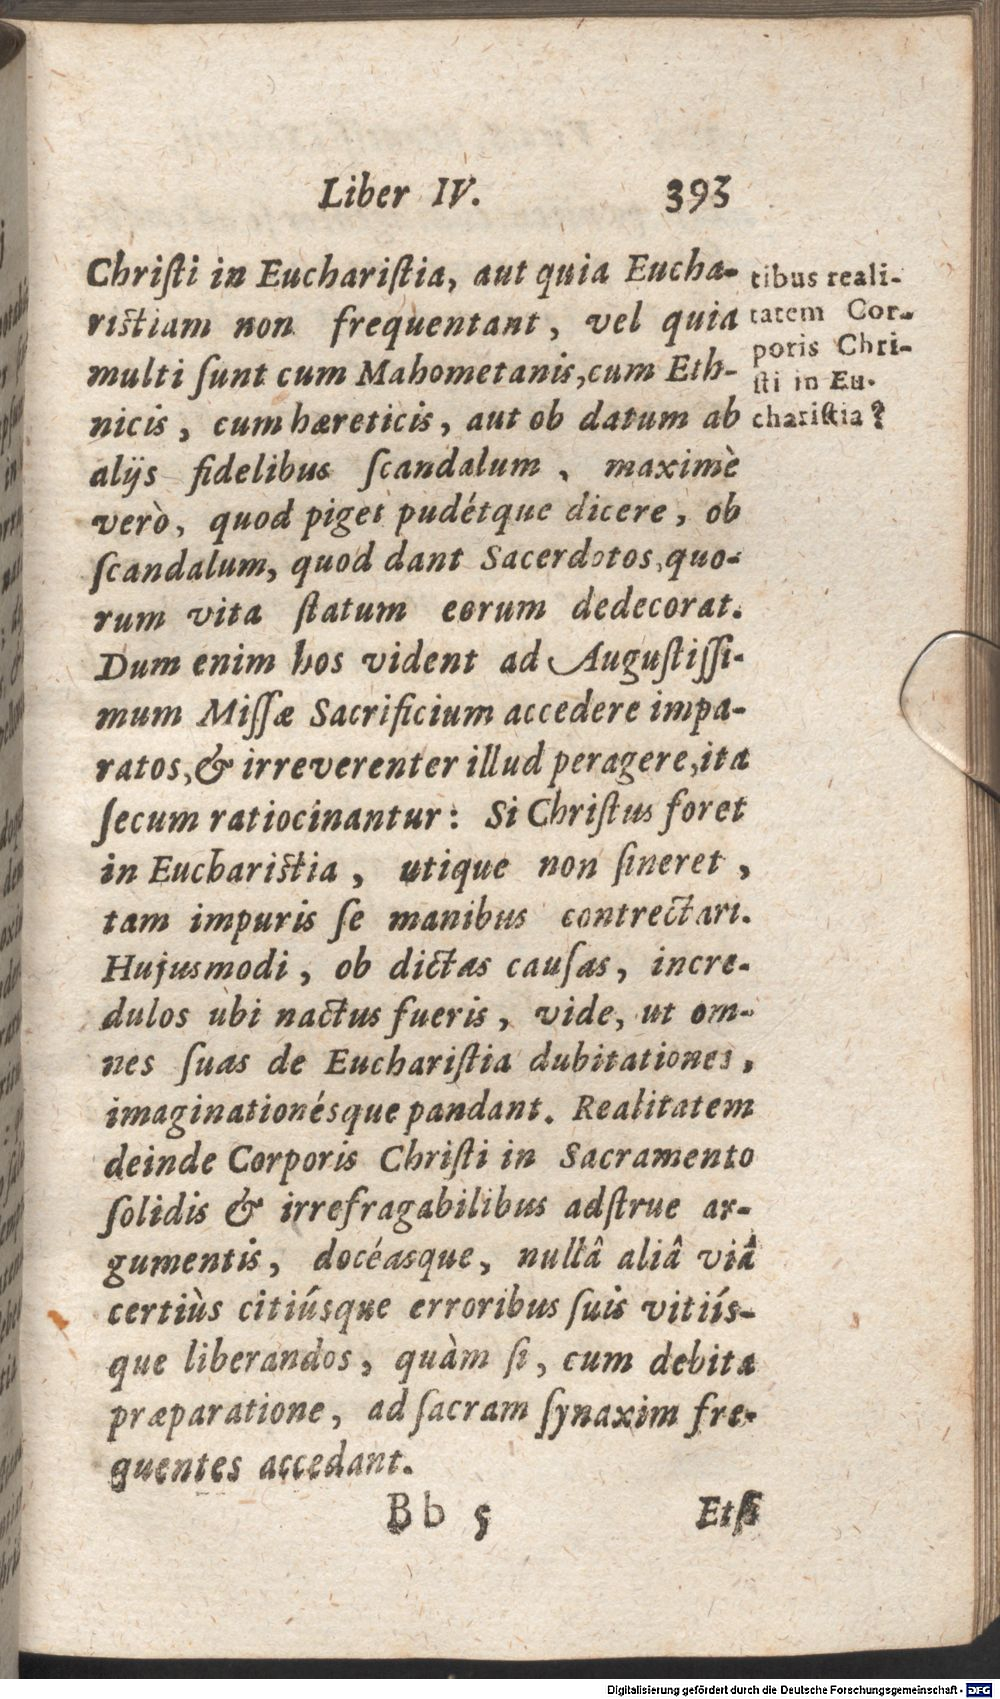 Liber IV. 393
Chriſti in Euchariſtia, aut quia Eucha-
riſtiam non frequentant, vel quia
multi ſunt cum Mahometanis, cum Eth-
nicis, cum hæreticis, aut ob datum ab
alijs fidelibus ſcandalum, maximè
verò, quod piget pudétque dicere, ob
ſcandalum, quod dant Sacerdotos, quo-
rum vita ſtatum eorum dedecorat.
Dum enim hos vident ad Auguſtiſſi-
mum Miſſæ Sacrificium accedere impa-
ratos, & irreverenter illud peragere, ita
ſecum ratiocinantur: Si Chriſtus foret
in Euchariſtia, utique non ſineret,
tam impuris ſe manibus contrectari.
Hujusmodi, ob dictas cauſas, incre-
dulos ubi nactus fueris, vide, ut om-
nes ſuas de Euchariſtia dubitationes,
imaginationésque pandant. Realitatem
deinde Corporis Chriſti in Sacramento
ſolidis & irrefragabilibus adſtrue ar-
gumentis, docéasque, nullâ aliâ viâ
certiùs citiúsque erroribus ſuis vitiís-
que liberandos, quàm ſi, cum debita
præparatione, ad ſacram ſynaxim fre-
quentes accedant.
tibus reali-
tatem Cor-
poris Chri-
ſti in Eu-
chariſtia?
Bb 5 Etſi
Digitalisierung gefördert durch die Deutsche Forschungsgemeinschaft - DFG